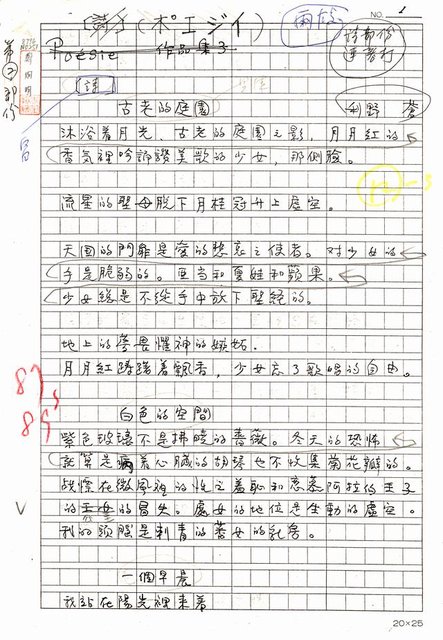 NO. 1
〔詩〕(ポエジイ)
兩份
Poésie 作品集3
第2部份
〔詩〕
古老的庭園 利野 蒼
沐浴着月光、古老的庭園之影,月月紅的
香氣裡吟誦讚美歌的少女,那側臉。
流星的聖母脫下月桂冠升上虛空。
天國的門扉是愛的 之使者。對少女的
手是脆弱的。更當和夏娃和蘋果。
少女總是不從手中放下聖經的。
地上的薔 畏懼神的嫉妬。
月月紅躊躇着飄香,少女忘了歌唱的自由。
白色的空間
紫色玻璃不是拂曉的薔薇。冬天的恐怖
就算是病着心臟的胡琴也不收集菊花瓣的。
戰慄在微風裡的性之羞恥和 阿拉伯王子
的 冒失。處女的地位是生動的虛空。
我的頭腦是刺青的薔女的乳房。
一個早晨
我站在陽光裡來着
20×25